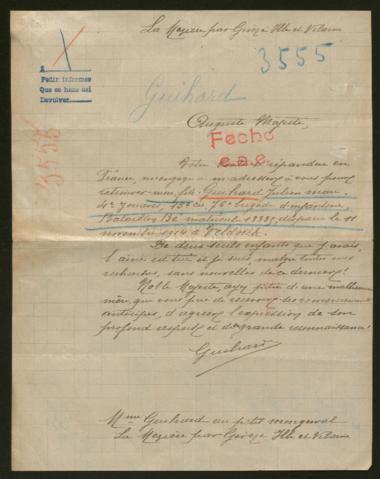 La Mezière par Gévezé Ille et Vilaine
A
Pedir informes
Que se hace del
Devolver
3555
3555
Guihard
Auguste Majesté,
Fecho
c.a.c.
Votre bonté répandue en
France m'engage à m'adresser à vous pour
retrouver mon fils. Guihard Julien
4e Zouaves, régiment d'infanterie
matricule disparu le 11
novembre 1914 à
De deux seuls enfants que j'avais,
l'aîné est tué et je suis, malgré toutes mes
recherches, sans nouvelles de ce dernier!
Noble Majesté, ayez pitié d'une malheureuse
mère, que vous prie de recevoir ses remerciements
anticipés, d'agréer l'expression de son
profond respect et de grande reconnaissance!
Guihard
Mme Guihard au petit
La Mezière par Gévezé Ille et Vilaine